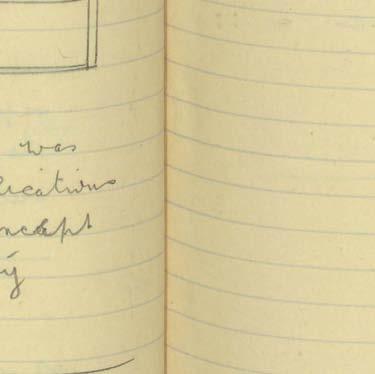 was
lications
ncept
y